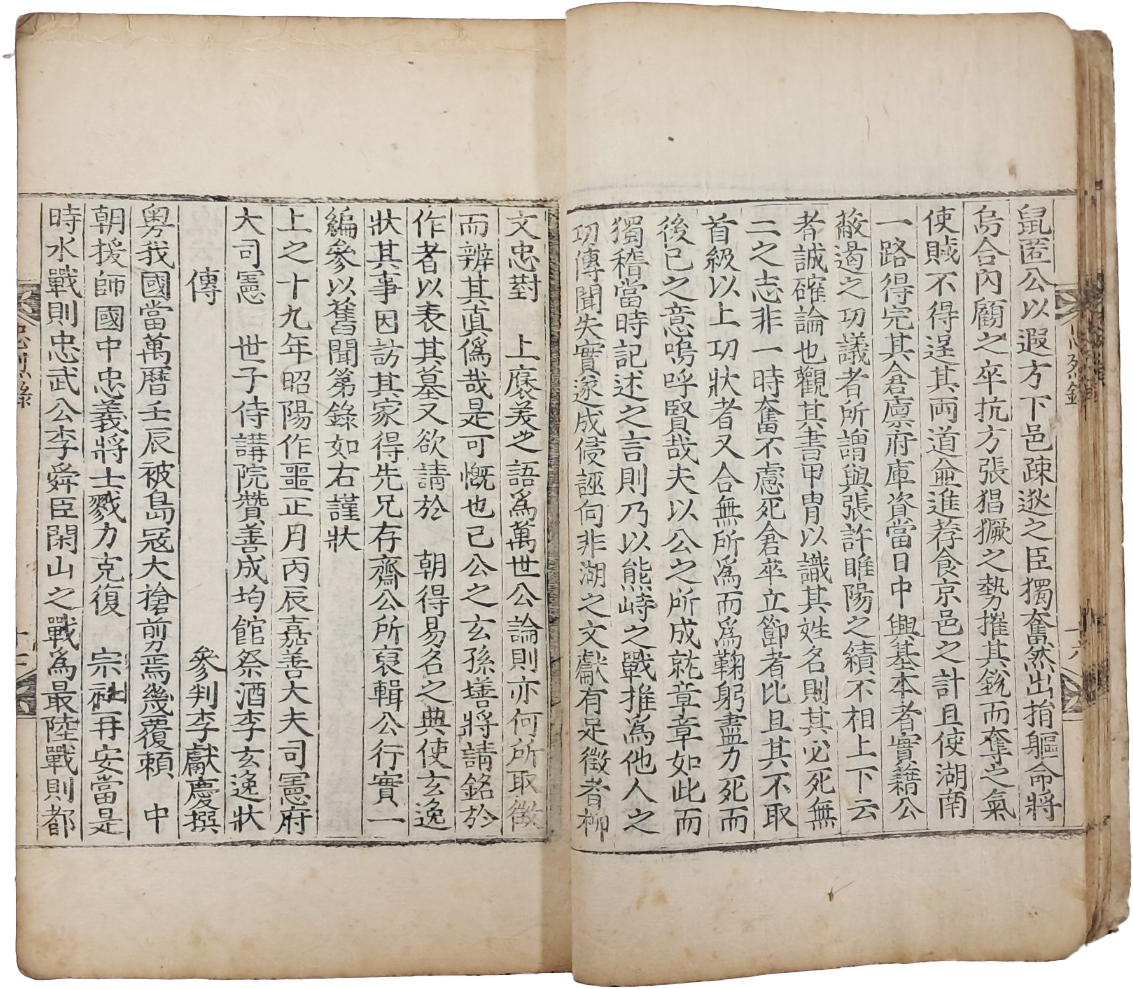 鼠匿公以遐方下邑疎逖之臣獨奮然出捐軀命將
烏合內顧之卒抗方張猖獗之勢摧其銳而奪之氣
使賊不得逞其両道並進荐食京邑之計且使湖南
一路得完其倉廩府庫資當日中興基本者實藉公
蔽遏之功議者所謂與張許睢陽之績不相上下云
者誠確論也觀其書甲冑以識其姓名則其必死無
二之志非一時奮不慮死倉卒立節者比且其不取
首級以上功狀者又合無所爲而爲鞠躬盡力死而
後已之意嗚呼賢哉夫以公之所成就章章如此而
獨稽當時記述之言則乃以熊峙之戰推爲他人之
功傳聞失實遂成侵誣向非湖之文獻有足徵者柳
文忠對　上褒美之語爲萬世公論則亦何所取徵
而辨其眞僞哉是可慨也已公之玄孫墡將請銘於
作者以表其墓又欲請於　朝得易名之典使玄逸
狀其事因訪其家得先兄存齋公所裒輯公行實一
編參以舊聞第錄如右謹狀
上之十九年昭陽作噩正月丙辰嘉善大夫司憲府
大司憲　世子侍講院贊善成均館祭酒李玄逸狀
傳　　　　　　　　　　　參判李獻慶撰
粤我國當萬曆壬辰被島冦大搶剪焉幾覆賴　中
朝援師國中忠義將士戮力克復　宗社再安當是
時水戰則忠武公李舜臣閑山之戰爲最陸戰則都
忠烈錄